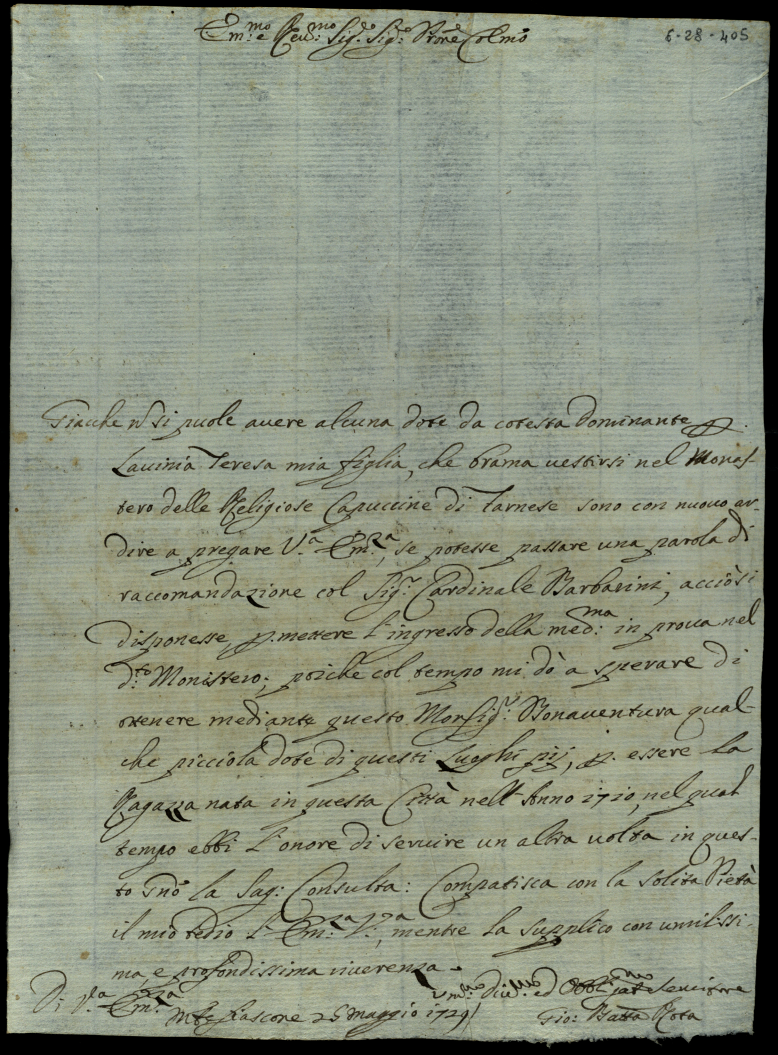 Em.mo e Rev.mo Sig.r Sig.r Prone Colmo
6-28-405
Giacche nō si puole avere alcuna dote da cotesta Dominante p.
Lavinia Teresa mia figlia, che brama vestirsi nel Monas-
tero delle Religiose Capuccine di Farnese sono con nuovo ar-
dire a pregare V.a Em.a, se potesse passare una parola di
raccomandazione col Sig.r Cardinale Barbarini, acciò si
disponesse p.mettere l'ingresso della med.ma in prova nel
d.to Monistero; poiche col tempo mi dò a sperare di
ottenere mediante questo Monsig.r Bonaventura qual-
che picciola dote di questi Luoghi pij, p. essere la
Ragazza nata in questa Città nell'Anno 1710, nel qual
tempo ebbi l'onore di servire un altra volta in ques-
to Gnō la Sag: Consulta: Compatisca con la solita Pietà
il mio tedio l'Em.za V.ra, mentre la supplico con umilissi-
ma, e profondissima riverenza.
Di V.a Em.za
Mte fiascone 25 Maggio 1729/
Vmo Divmo ed Obblmo Servitore
Gio: Batta Rota